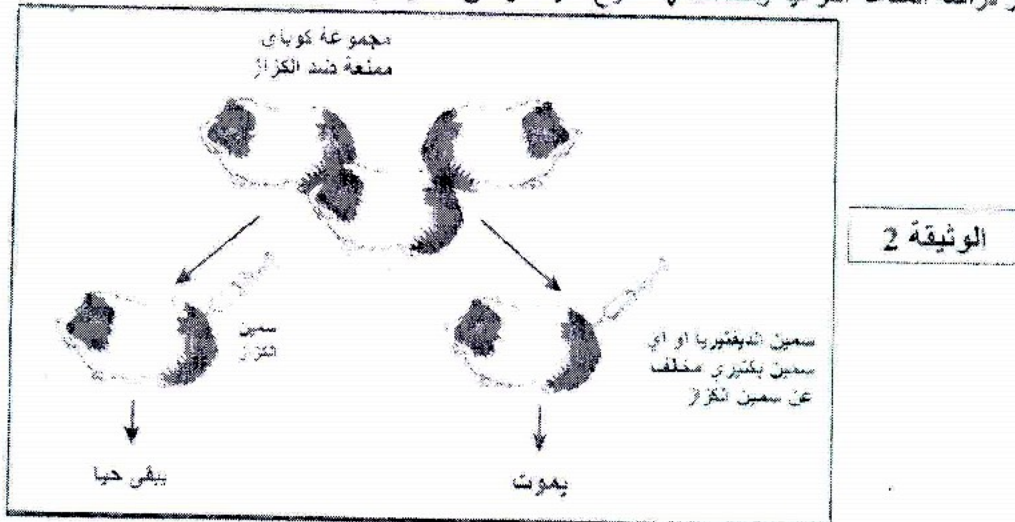 مجموعة كوباي
ممنعة ضد الكزاز
الوثيقة 2
سمين
الكزاز
سمين الديفتيريا او اي
سمين بكتيري مخلف
عن سمين الكزاز
يبقى حيا
يموت